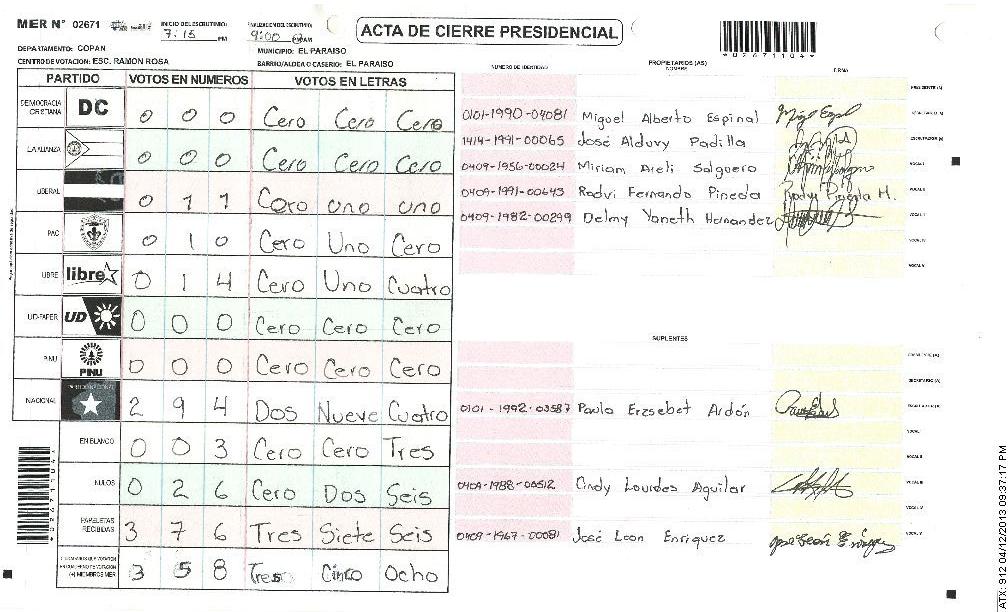 MER N° 02671
INICIO DEL ESCRUTINIO
7:15 PM
FINALIZACION DEL ESCRUTINIO
9:00 PM/AM
ACTA DE CIERRE PRESIDENCIAL
*02671104*
DEPARTAMENTO: COPAN
MUNICIPIO: EL PARAISO
CENTRO DE VOTACION: ESC. RAMON ROSA
BARRIO/ALDEA O CASERIO: EL PARAISO
PARTIDO VOTOS EN NUMEROS VOTOS EN LETRAS
DEMOCRACIA CRISTIANA DC 0 0 0 Cero Cero Cero
LA ALIANZA 0 0 0 Cero Cero Cero
LIBERAL 0 1 1 Cero uno uno
PAC 0 1 0 Cero Uno Cero
LIBRE libre 0 1 4 Cero Uno Cuatro
UD-FAPER UD 0 0 0 Cero Cero Cero
PINU PINU 0 0 0 Cero Cero Cero
NACIONAL PARTIDO NACIONAL 2 9 4 Dos Nueve Cuatro
EN BLANCO 0 0 3 Cero Cero Tres
NULOS 0 2 6 Cero Dos Seis
PAPELETAS RECIBIDAS 3 7 6 Tres Siete Seis
CIUDADANOS QUE VOTARON EN CUADERNO DE VOTACION (+) MIEMBROS MER 3 5 8 Tres Cinco Ocho
NUMERO DE IDENTIDAD PROPIETARIOS (AS) NOMBRE FIRMA
PRESIDENTE (A)
0101-1990-04081 Miguel Alberto Espinal SECRETARIO (A)
1414-1991-00065 José Alduvy Padilla ESCRUTADOR (A)
0409-1956-00024 Miriam Areli Salguero VOCAL I
0409-1991-00643 Rodvi Fernando Pineda VOCAL II
0409-1982-00299 Delmy Yaneth Hernandez VOCAL III
VOCAL IV
VOCAL V
SUPLENTES
PRESIDENTE (A)
SECRETARIO (A)
0101-1992-03587 Paula Erzsebet Ardón ESCRUTADOR (A)
VOCAL I
VOCAL II
0409-1988-00512 Cindy Lourdes Aguilar VOCAL III
VOCAL IV
0409-1967-00081 José Leon Enriquez VOCAL V
ATX: 912 04/12/2013 09:37:17 PM